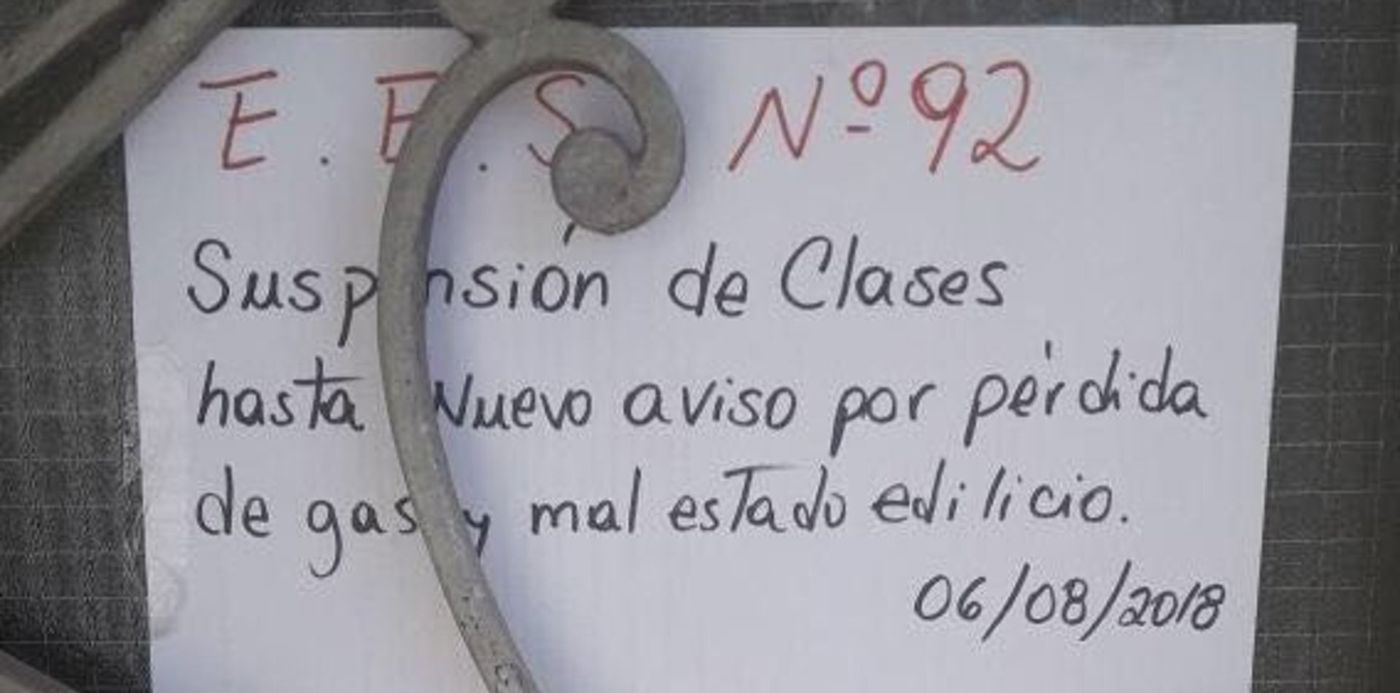 E.E.S Nº 92
Suspensión de Clases
hasta Nuevo aviso por pérdida
de gas y mal estado edilicio.
06/08/2018